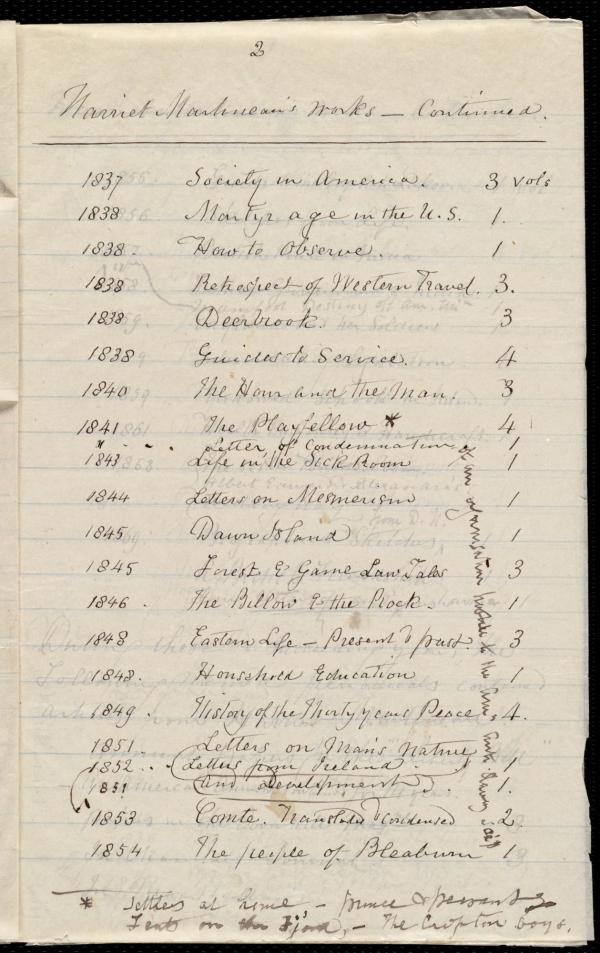 2
Harriet Martineau's works — Continued.
1837 Society in America. 3 vols
1838 Martyr age in the U.S. 1.
1838. How to Observe. 1
1838 Retrospect of Western Travel. 3.
1838 Deerbrook. 3
1838 Guides to Service. 4
1840 The Hour and the Man. 3
1841 The Playfellow * 4
" . . Letter of Condemnation 1
of an organisation
1843 Life in the Sick Room 1
1844 Letters on Mesmerism 1
1845 Dawn Island 1
1845 Forest & Game Law Tales 3
1846. The Billow & the Rock. 1
1848 Eastern Life — Present & past. 3
1848. Household Education 1
1849. History of the Thirty years Peace, 4.
1851. Letters on Man's Nature
1852. . Letters from Ireland. 1
1851 and development. 1.
1853 Comte. Translated & condensed 2.
1854 The people of Bleaburn 1
* Settlers at home — Prince & peasant
Feats on the Fjord, — The Crofton boys.